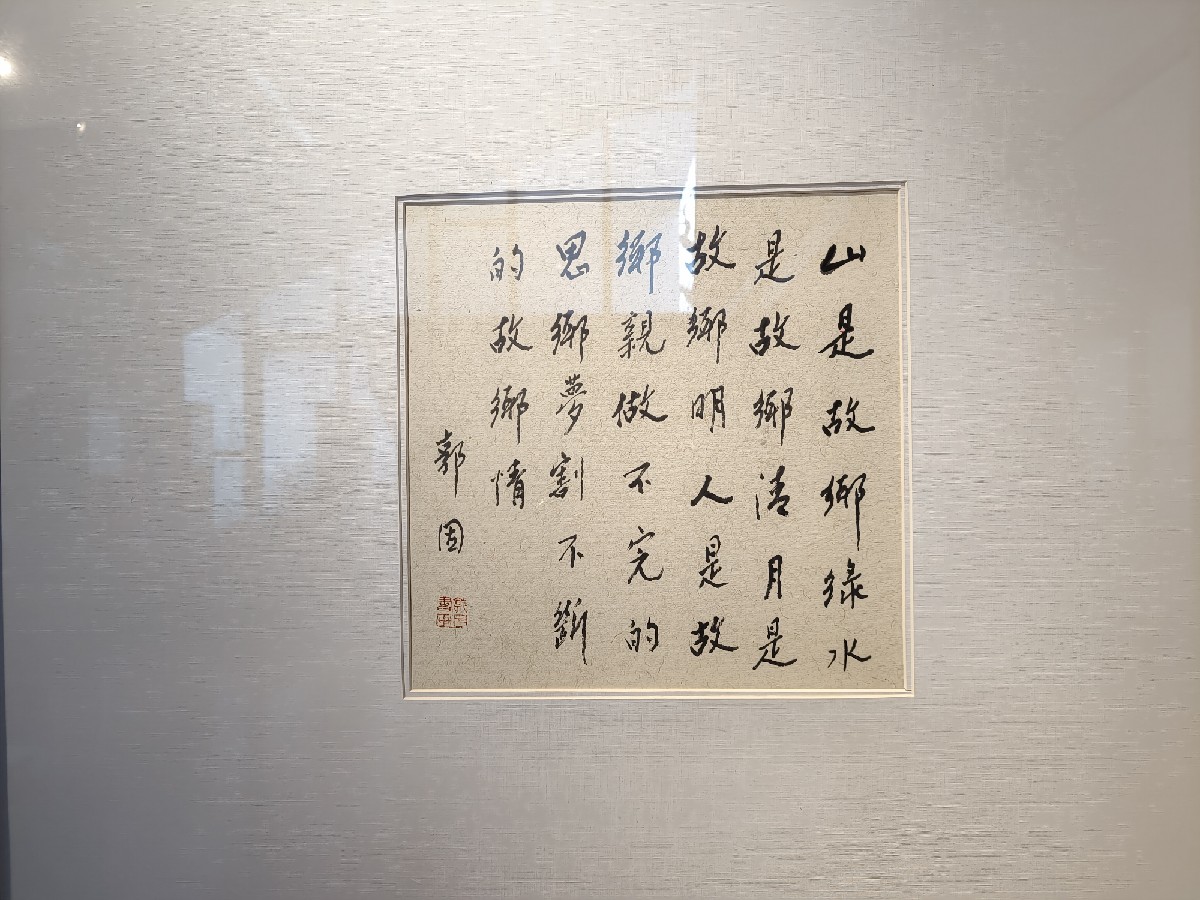 山是故鄉綠水
是故鄉清月是
故鄉明人是故
鄉親做不完的
思鄉夢割不斷
的故鄉情
郭固